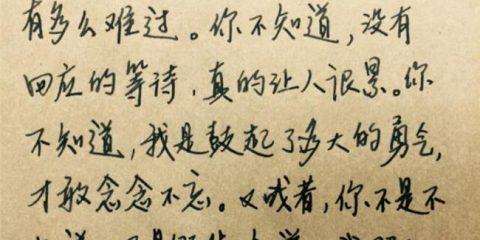 有多么难过。你不知道,没有
回应的等待,真的让人很累。你
不知道,我是鼓起了多大的勇气,
才敢念念不忘。又或者,你不是不